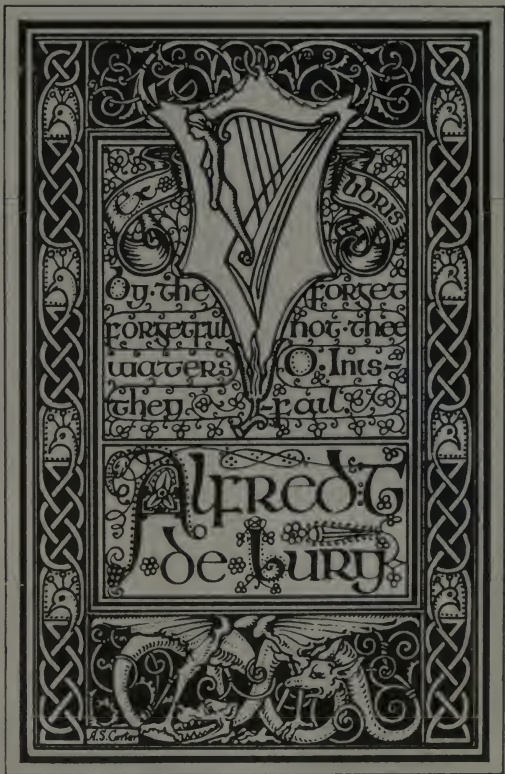 Ex Libris
By·the
forgetful
waters
they
forget
not·thee
O·Inis-
-fail.
Alfred·T
de·Lury
A.S. Carter